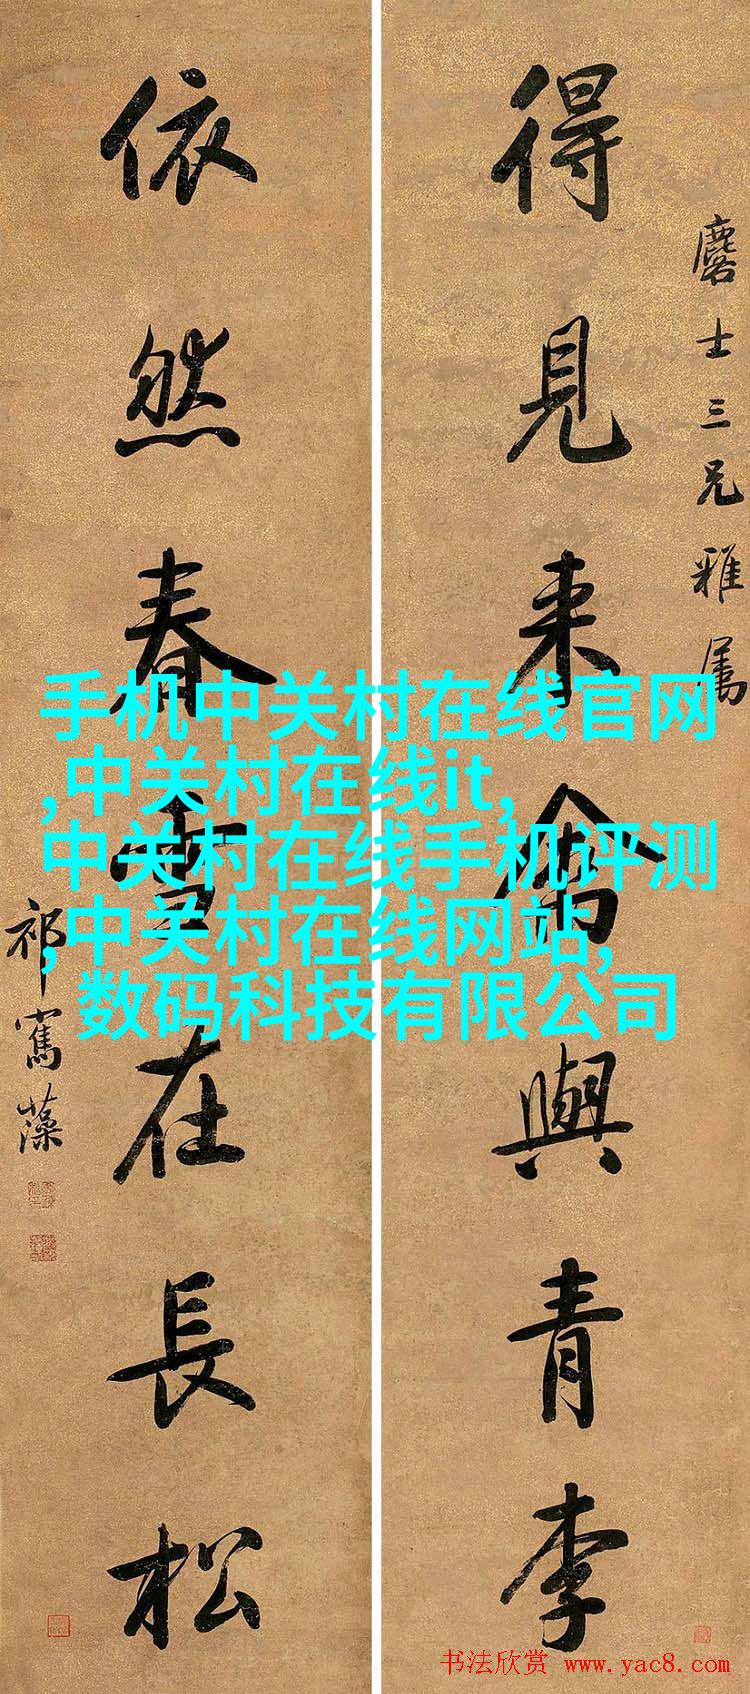 麐士三兄雅属
得見来禽與青李
依然春雪在長松
祁寯藻
手机中关村在线官网
,中关村在线it,
中关村在线手机评测
,中关村在线网站,
数码科技有限公司
书法欣赏 www.yac8.com